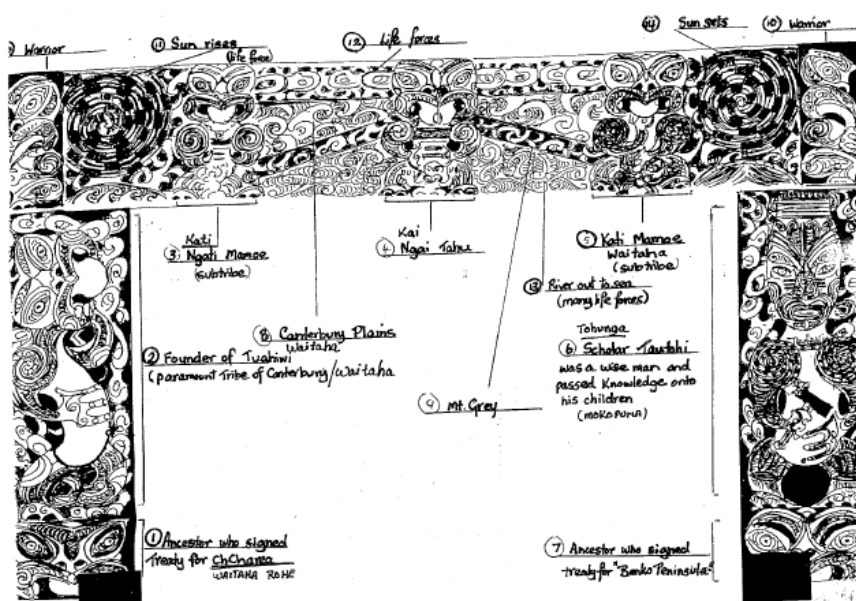 Warrior
⑪ Sun rises
(life force)
⑫ Life forces
⑭ Sun sets
⑩ Warrior
Kati
③ Ngati Mamoe
(subtribe)
Kai
④ Ngai Tahu
⑤ Kati Mamoe
Waitaha
(subtribe)
⑬ River out to sea
(many life forces)
⑧ Canterbury Plains
Waitaha
② Founder of Tuahiwi
(paramount Tribe of Canterbury/Waitaha
⑨ Mt. Grey
Tohunga
⑥ Scholar Tawhhi
was a wise man and
passed Knowledge onto
his children
(MOKOPUNA)
① Ancestor who signed
Treaty for
WAITAHA ROHE
⑦ Ancestor who signed
treaty for "Banks Peninsula"